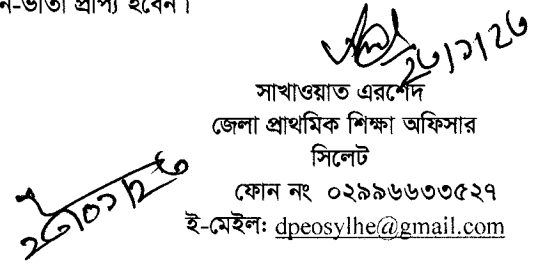 ন-ভাতা প্রাপ্য হবেন।
২৬/১/২৬
সাখাওয়াত এরশেদ
জেলা প্রাথমিক শিক্ষা অফিসার
সিলেট
২৬/০১/২৬
ফোন নং ০২৯৯৬৬৩৩৫২৭
ই-মেইলঃ dpeosylhe@gmail.com